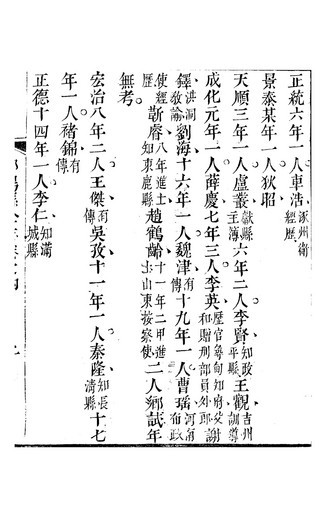 正統六年一人車浩涿州衛經歷
景泰某年一人狄昭
天順三年一人盧叢獻縣主簿六年二人李賢知政平縣王觀吉州訓導
成化元年一人薛慶七年三人李英歷官知府父謝和贈刑部員外郎
鐸洪洞教諭劉海十六年一人魏津有傳十九年一人曹璠河南布政
使經歷靳睿八年進士知東鹿縣趙鶴齡十一年二甲進士山東按察使二人鄉試年
無考
宏治八年二人王傑有傳吳孜十一年一人秦隆知長清縣十七
年一人褚錦有傳
正德十四年一人李仁知滿城縣